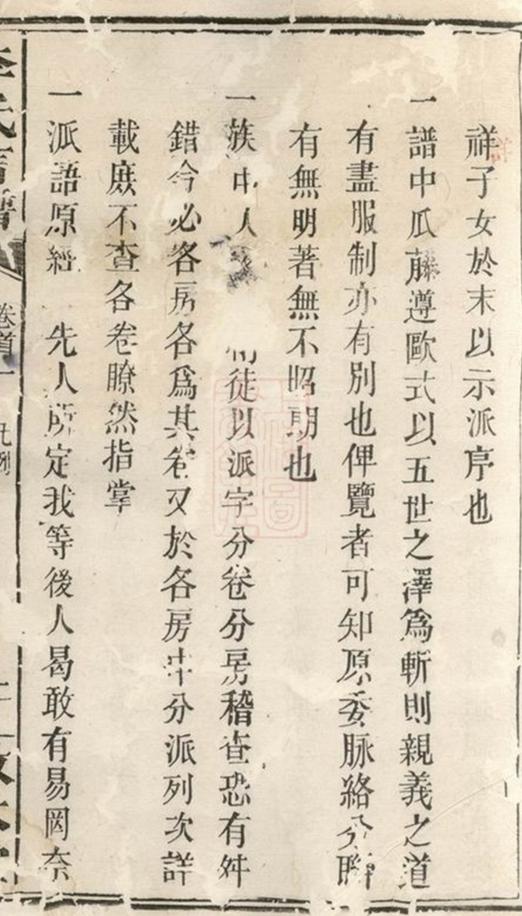 祥子女於末以示派序也
一譜中瓜藤遵歐式以五世之澤為斬則親義之道
有盡服制亦有別也俾覽者可知原委脉絡分明
有無明著無不昭朗也
一族中人 徒以派字分卷分房稽查恐有舛
錯今必各房各為其卷又於各房中分派列次詳
載庶不查各卷瞭然指掌
一派語原經 先人所定我等後人曷敢有易罔奈
卷首一 凡例